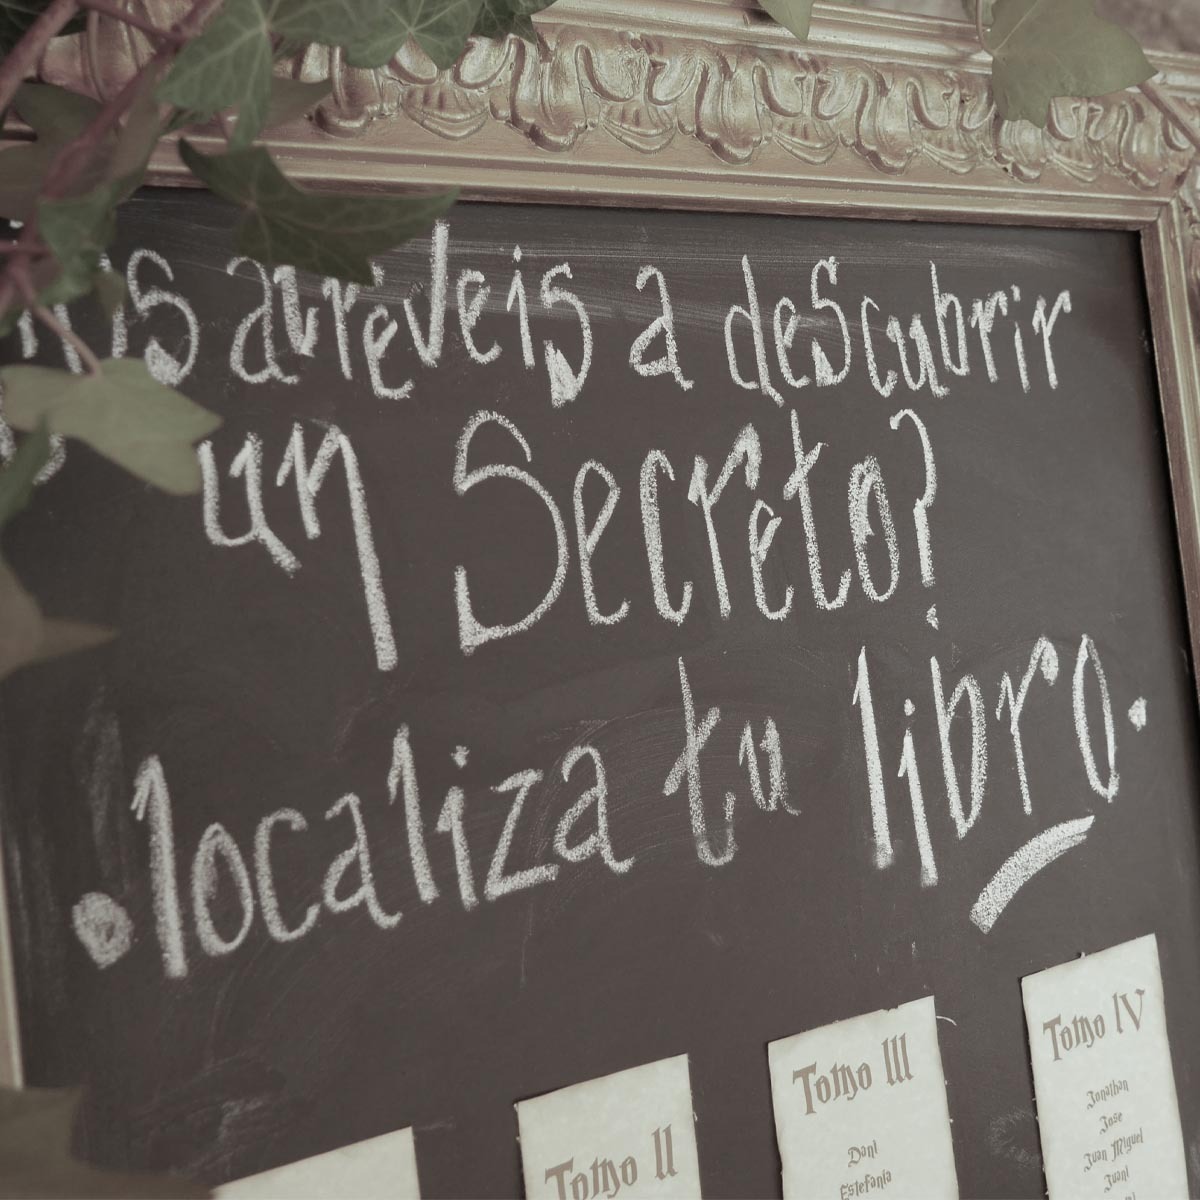 atreveis a descubrir
un Secreto?
• localiza tu libro.
Tomo II
Tomo III
Dani
Estefania
Tomo IV
Jonathan
Jose
Juan Miguel
Juani